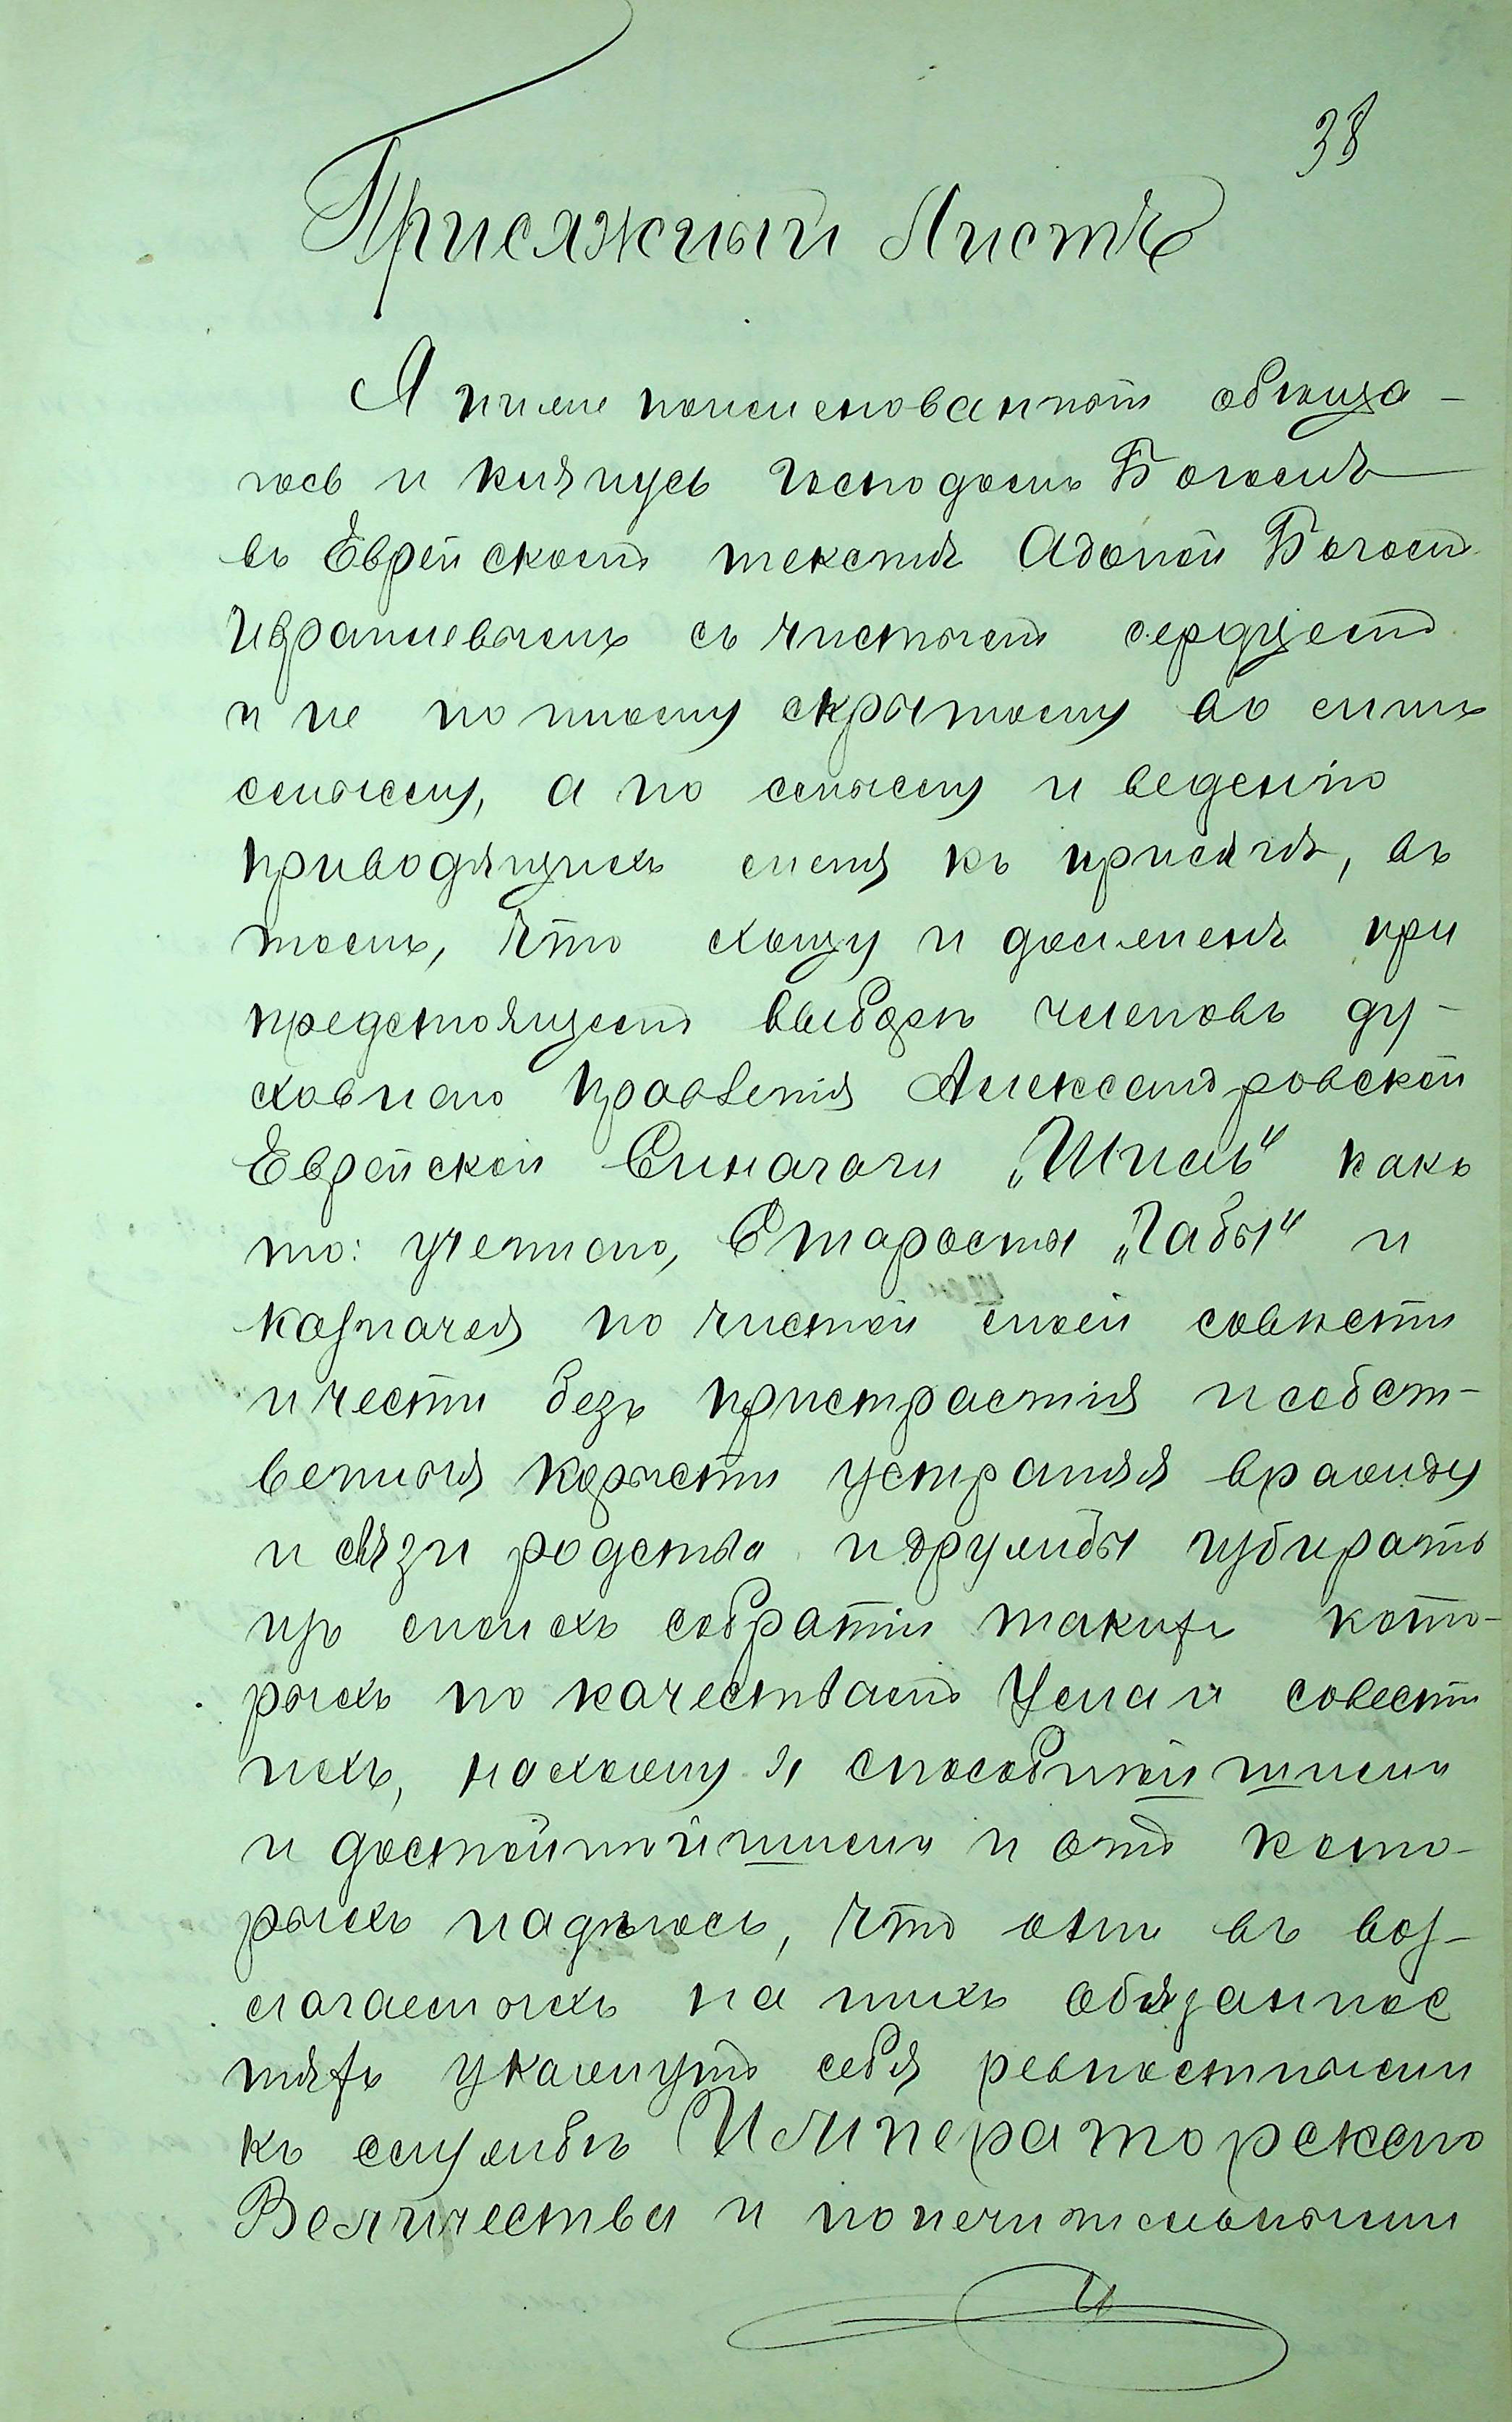 38
Присяжный Листъ
Я ниже поименованный обеща-
юсь и клянусь Господомъ Богомъ
въ Еврейскомъ текстѣ Адонои Богомъ
Израилевымъ съ чистымъ сердцемъ
и не по иному скрытому во мнѣ
смыслу, а по смыслу и ведению
приводящихъ меня къ присягѣ, въ
томъ, что хощу и долженъ при
предстоящемъ выборѣ членовъ ду-
ховнаго правленія Александровской
Еврейской Синагоги „Шиль" какъ
то: ученаго, Старосты „Габы" и
казначея по чистой моей совѣсти
и чести безъ пристрастія и собст-
венныя корысти устраняя вражду
и связи родства и дружбы избирать
изъ моихъ собратій такихъ кото-
рыхъ по качествамъ Ума и совести
ихъ, нахожу я способнойшими
и достойнойшими и отъ кото-
рыхъ надѣюсь, что они въ воз-
лагаемыхъ на нихъ обязаннос
тяхъ укажутъ себя ревностными
къ службѣ Императорскаго
Величества и попечительными
и